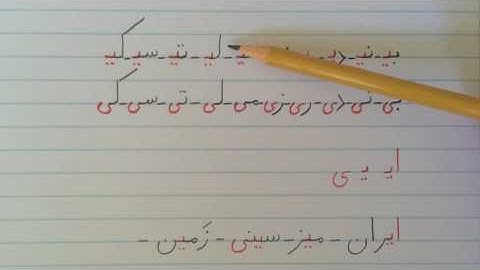 بیـ نیـ لیـ ـ تیـ ـ سیـ ـ کیـ
بی ـ نی ـ دی ـ ری زی می ـ لی ـ تی ـ سی ـ کی
ایـ یـ ی
ایران - میز - سینی - زَمین -